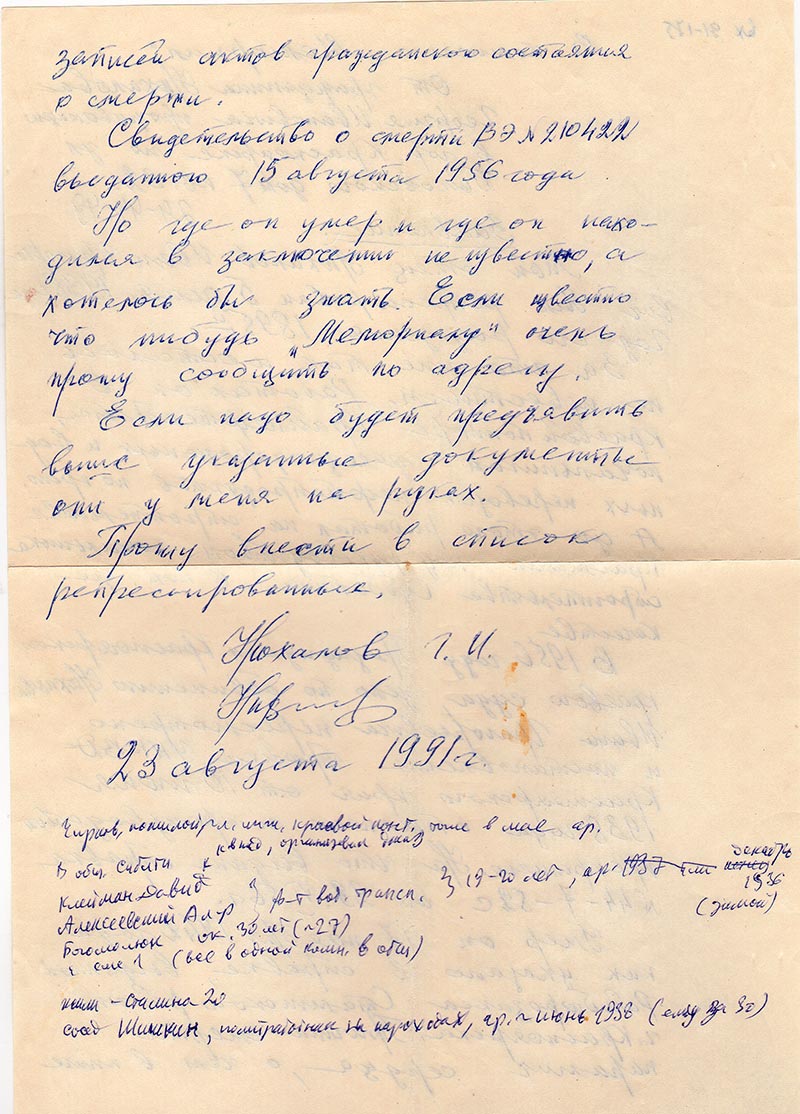 записей актов гражданского состояния
о смерти.
Свидетельство о смерти ВЭ №210422
выданного 15 августа 1956 года.
Но где он умер и где он нахо-
дился в заключении не извес<s>т</s>но, а
хотелось бы знать. Если известно
что нибудь „Мемориалу" очень
прошу сообщить по адресу.
Если надо будет предъявить
выше указанные документы
они у меня на руках.
Прошу внести в список
репрессированных.
Г. И.
23 августа 1991 г.
пожилой, тоже в мае ар.
В общ. Сибити
Клейман Давид
Алексеевский Ал-р
19-20 лет, ар. 1937 или декабрь
1936
(зимой)
Богомолюк ок. 30 лет (~27)
и еще 1 (все в одной комн. в общ)
Сталина 20
сосед Шишкин, политработник на пароходах, ар. июнь 1938